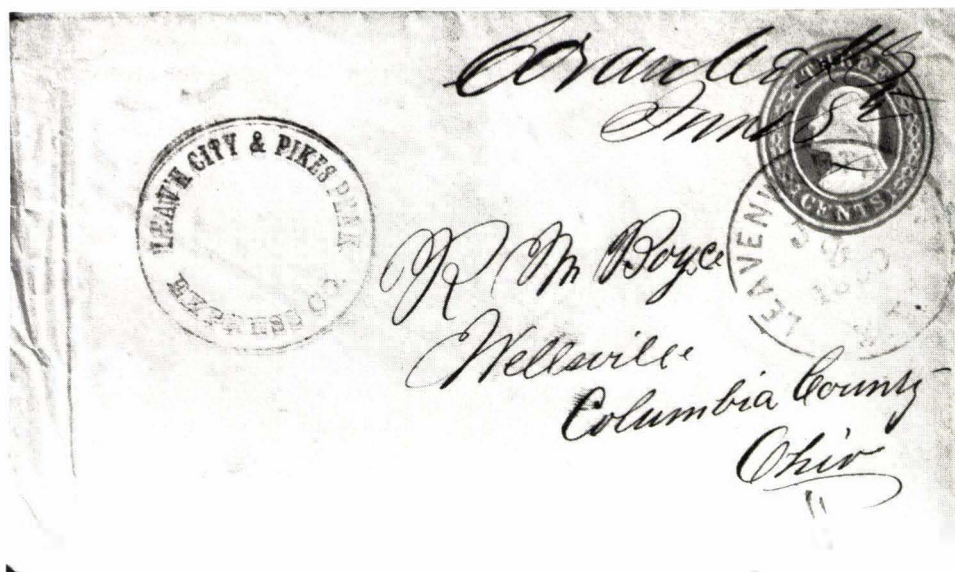 THREE
CENTS
LEAV'H CITY & PIKES PEAK
EXPRESS CO.
LEAVEN
R M Boyce
Wellsville
Columbia County
Ohio